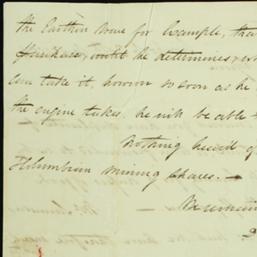 the Earthen ware for Example, tha
purchase, until he determines, w
can take it, however so soon as he
the engine takes. he will be able t
Nothing heard of
Columbian Mining Shares. —
We remain